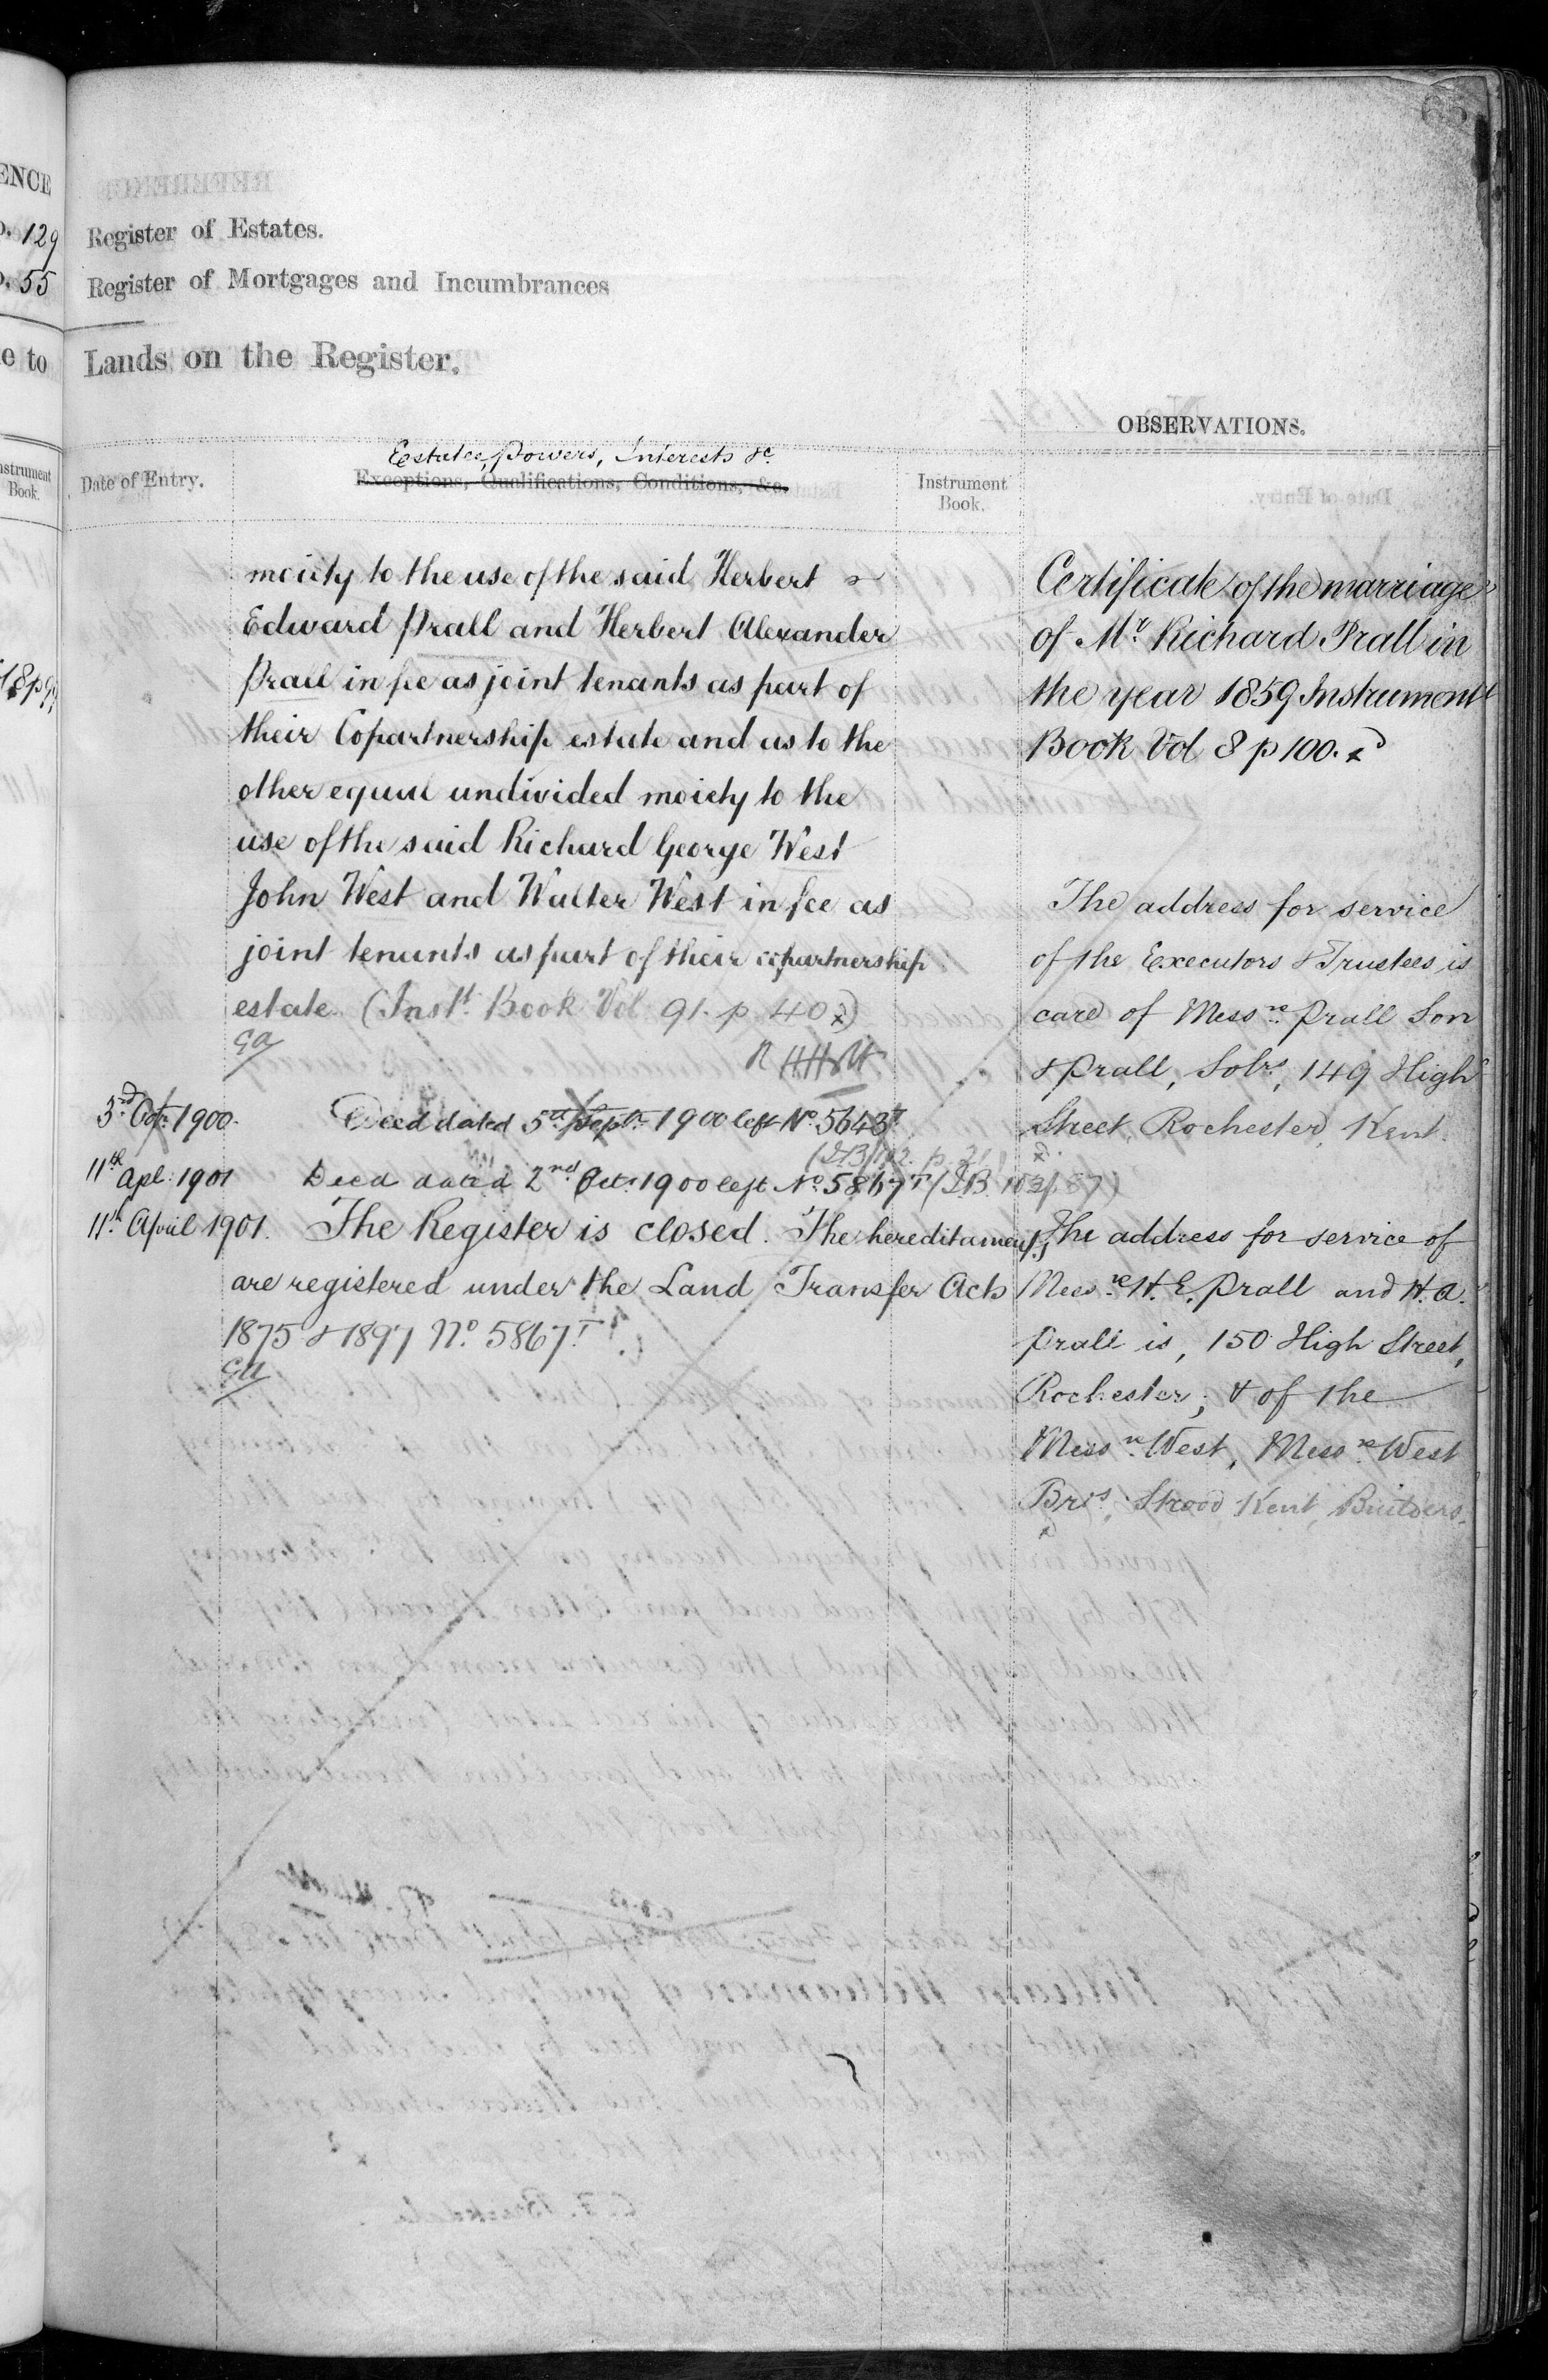 65
ENCE
129
55
e to
Instrument
Book.
Register of Estates.
Register of Mortgages and Incumbrances
Lands on the Register.
OBSERVATIONS.
Estates, Powers, Interests &c.
Date of Entry.
Exceptions, Qualifications, Conditions, &c.
Instrument
Book.
moiety to the use of the said Herbert
Edward Prall and Herbert Alexander
Prall in fee as joint tenants as part of
their Copartnership estate and as to the
other equal undivided moiety to the
use of the said Richard George West
John West and Walter West in fee as
joint tenants as part of their copartnership
estate (Instt. Book Vol 91. p 40)
3rd Oct. 1900. Deed dated 5th Septr. 1900 left No. 5643T
(IB 102. p 21)
11th Apl. 1901 Deed dated 2nd Oct. 1900 left No. 5867T (IB. 102/p. 87)
11th April 1901. The Register is closed. The hereditaments
are registered under the Land Transfer Acts
1875 & 1897 No. 5867T.
Certificate of the marriage
of Mr. Richard Prall in
the year 1859 Instrument
Book Vol 8 p 100.
The address for service
of the Executors & Trustees is
care of Messrs. Prall Son
& Prall, Solrs, 149 High
Street, Rochester, Kent.
The address for service of
Messrs. H. E. Prall and H. A.
Prall is, 150 High Street,
Rochester, & of the
Messrs. West, Messrs. West
Brs, Strood Kent, Builders.